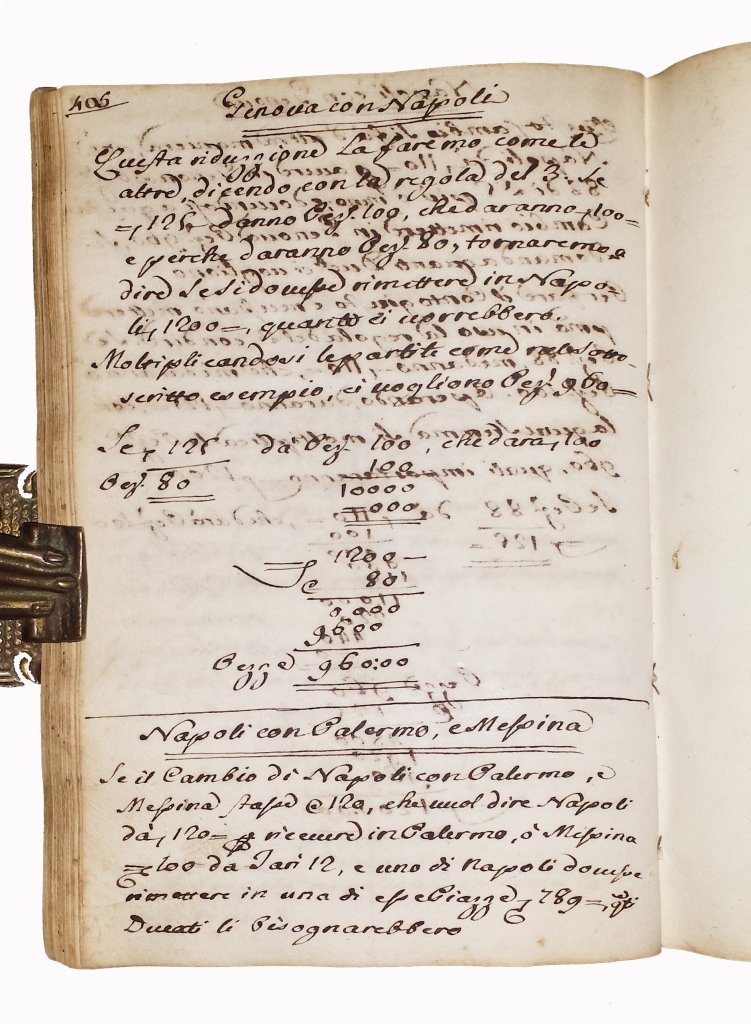 406
Genova con Napoli
Questa riduzzione La faremo come le
altre, dicendo con la regola del 3: Se
125 danno Pez. 100, che daranno 100=
e perche daranno Pez. 80, tornaremo a
dire Se si dovesse rimettere in Napo-
li, 1200=, quanti ci vorrebbero.
Moltiplicandosi le partite come nel sotto-
scritto esempio, ci vogliono Pez. 960=
Se 125 da Pez. 100, che dara 100
Pez. 80
100
10000
=000
1200—
Se 80
0000
9600
Pezze 960:00
Napoli con Palermo, e Messina
Se il Cambio di Napoli con Palermo, e
Messina stasse @ 120, che vuol dire Napoli
da, 120= ricevere in Palermo, ò Messina
=100 da Tari 12, e uno di Napoli dovesse
rimettere in una di esse Piazze 789=, qti
Ducati li bisognarebbero